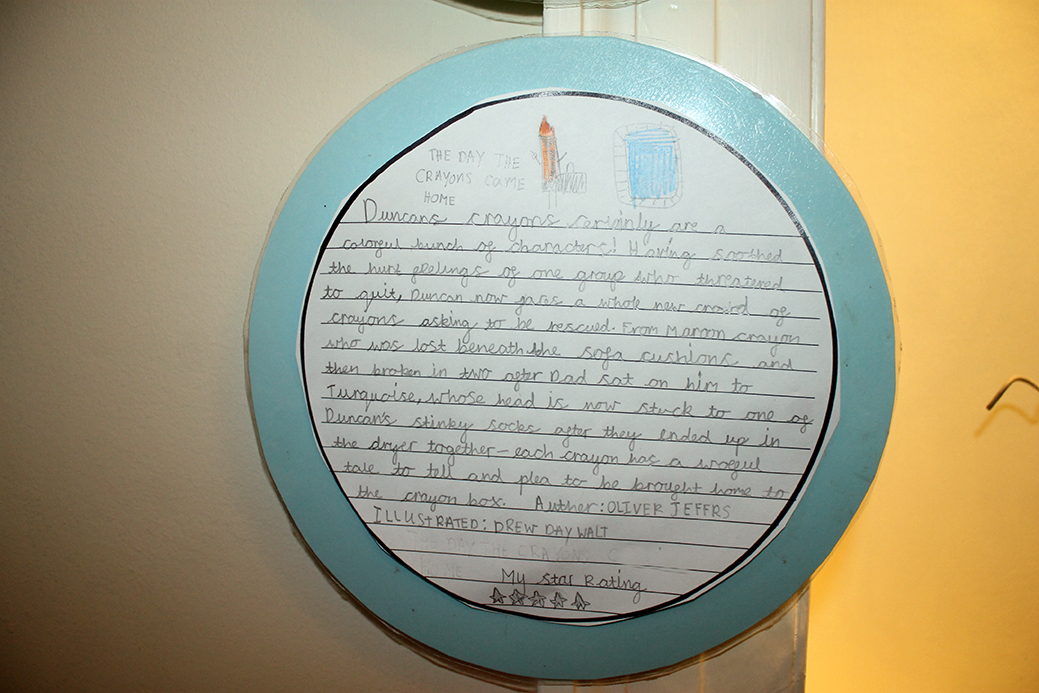 THE DAY THE
CRAYONS COME
HOME
Duncans crayons certainly are a
colorful bunch of characters! Having soothed
the hurt feelings of one group who threatened
to quit, Duncan now faces a whole new crowd of
crayons asking to be rescued. From Maroon crayon
who was lost beneath the sofa cushions and
then broken in two after Dad sat on him to
Turquoise, whose head is now stuck to one of
Duncan's stinky socks after they ended up in
the dryer together—each crayon has a woeful
tale to tell and plea to be brought home to
the crayon box. Auther: OLIVER JEFFRS
ILLUSTRATED: DREW DAY WALT
THE DAY THE CRAYONS C
HOME
My star Rating